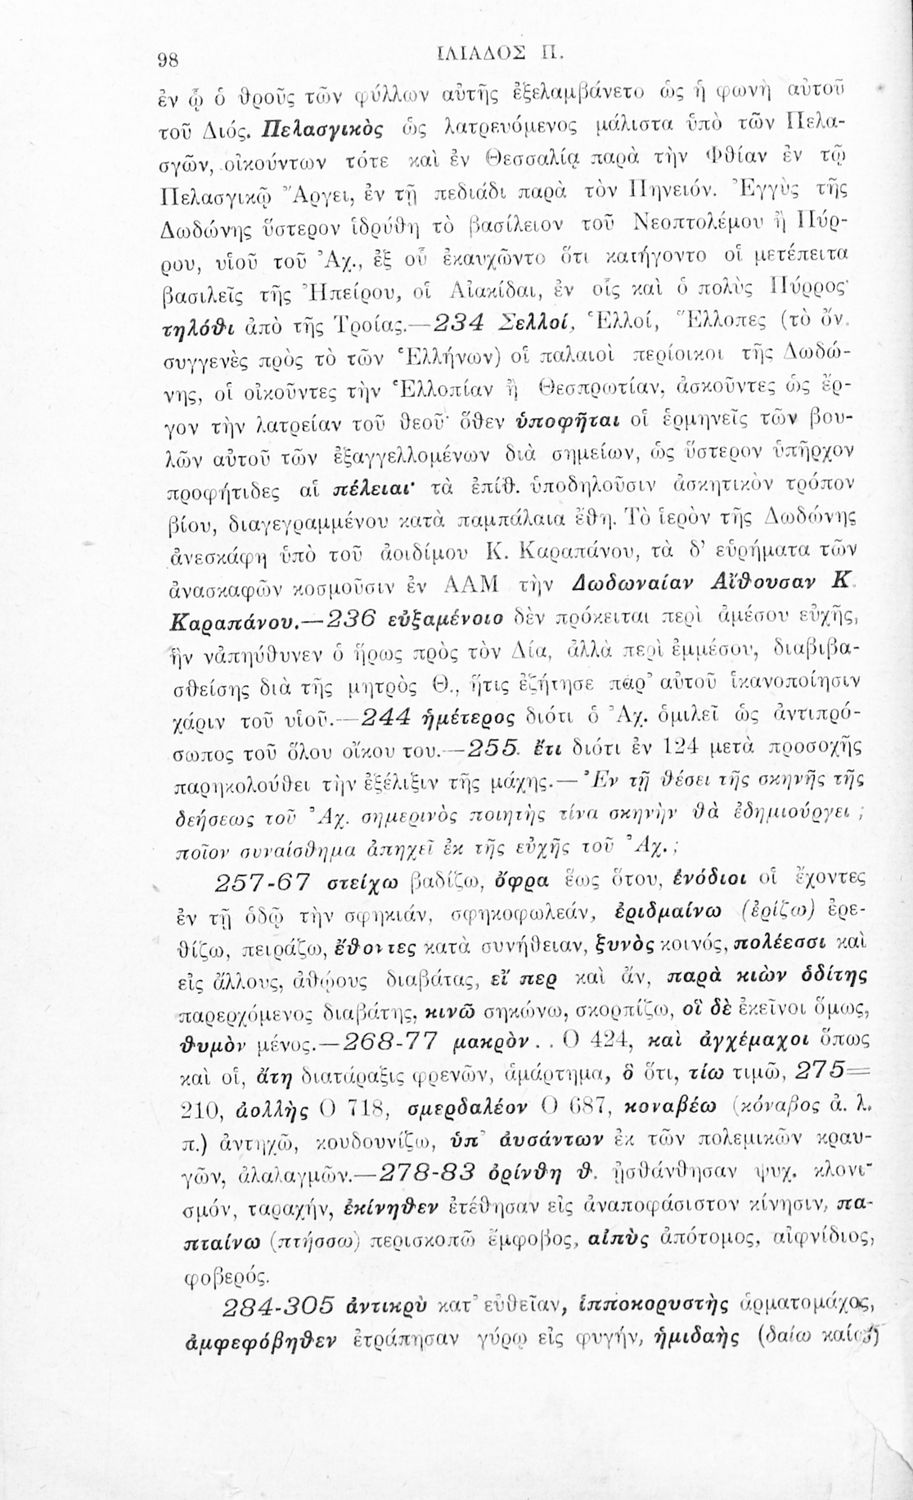 98
ΙΛΙΑΔΟΣ Π.
ἐν ᾧ ὁ θροῦς τῶν φύλλων αὐτῆς ἐξελαμβάνετο ὡς ἡ φωνὴ αὐτοῦ
τοῦ Διός. Πελασγικὸς ὡς λατρευόμενος μάλιστα ὑπὸ τῶν Πελα-
σγῶν, οἰκούντων τότε καὶ ἐν Θεσσαλίᾳ παρὰ τὴν Φθίαν ἐν τῷ
Πελασγικῷ Ἄργει, ἐν τῇ πεδιάδι παρὰ τὸν Πηνειόν. Ἐγγὺς τῆς
Δωδώνης ὕστερον ἱδρύθη τὸ βασίλειον τοῦ Νεοπτολέμου ἢ Πύρ-
ρου, υἱοῦ τοῦ Ἀχ., ἐξ οὗ ἐκαυχῶντο ὅτι κατήγοντο οἱ μετέπειτα
βασιλεῖς τῆς Ἠπείρου, οἱ Αἰακίδαι, ἐν οἷς καὶ ὁ πολὺς Πύρρος·
τηλόθι ἀπὸ τῆς Τροίας.—234 Σελλοί, Ἑλλοί, Ἕλλοπες (τὸ ὄν.
συγγενὲς πρὸς τὸ τῶν Ἑλλήνων) οἱ παλαιοὶ περίοικοι τῆς Δωδώ-
νης, οἱ οἰκοῦντες τὴν Ἑλλοπίαν ἢ Θεσπρωτίαν, ἀσκοῦντες ὡς ἔρ-
γον τὴν λατρείαν τοῦ θεοῦ· ὅθεν ὑποφῆται οἱ ἑρμηνεῖς τῶν βου-
λῶν αὐτοῦ τῶν ἐξαγγελλομένων διὰ σημείων, ὡς ὕστερον ὑπῆρχον
προφήτιδες αἱ πέλειαι· τὰ ἐπίθ. ὑποδηλοῦσιν ἀσκητικὸν τρόπον
βίου, διαγεγραμμένου κατὰ παμπάλαια ἔθη. Τὸ ἱερὸν τῆς Δωδώνης
ἀνεσκάφη ὑπὸ τοῦ ἀοιδίμου Κ. Καραπάνου, τὰ δ’ εὑρήματα τῶν
ἀνασκαφῶν κοσμοῦσιν ἐν ΑΑΜ τὴν Δωδωναίαν Αἴθουσαν Κ.
Καραπάνου.—236 εὐξαμένοιο δὲν πρόκειται περὶ ἀμέσου εὐχῆς,
ἣν νἀπηύθυνεν ὁ ἥρως πρὸς τὸν Δία, ἀλλὰ περὶ ἐμμέσου, διαβιβα-
σθείσης διὰ τῆς μητρὸς Θ., ἥτις ἐζήτησε παρ’ αὐτοῦ ἱκανοποίησιν
χάριν τοῦ υἱοῦ.—244 ἡμέτερος διότι ὁ Ἀχ. ὁμιλεῖ ὡς ἀντιπρό-
σωπος τοῦ ὅλου οἴκου του.—255. ἔτι διότι ἐν 124 μετὰ προσοχῆς
παρηκολούθει τὴν ἐξέλιξιν τῆς μάχης.—Ἐν τῇ θέσει τῆς σκηνῆς τῆς
δεήσεως τοῦ Ἀχ. σημερινὸς ποιητὴς τίνα σκηνὴν θὰ ἐδημιούργει ;
ποῖον συναίσθημα ἀπηχεῖ ἐκ τῆς εὐχῆς τοῦ Ἀχ.;
257-67 στείχω βαδίζω, ὄφρα ἕως ὅτου, ἐνόδιοι οἱ ἔχοντες
ἐν τῇ ὁδῷ τὴν σφηκιάν, σφηκοφωλεάν, ἐριδμαίνω (ἐρίζω) ἐρε-
θίζω, πειράζω, ἔθοντες κατὰ συνήθειαν, ξυνὸς κοινός, πολέεσσι καὶ
εἰς ἄλλους, ἀθῴους διαβάτας, εἴ περ καὶ ἄν, παρὰ κιὼν ὁδίτης
παρερχόμενος διαβάτης, κινῶ σηκώνω, σκορπίζω, οἳ δὲ ἐκεῖνοι ὅμως,
θυμὸν μένος.—268-77 μακρὸν . . Ο 424, καὶ ἀγχέμαχοι ὅπως
καὶ οἱ, ἄτη διατάραξις φρενῶν, ἁμάρτημα, ὃ ὅτι, τίω τιμῶ, 275=
210, ἀολλὴς Ο 718, σμερδαλέον Ο 687, κοναβέω (κόναβος ἀ. λ.
π.) ἀντηχῶ, κουδουνίζω, ὑπ’ ἀυσάντων ἐκ τῶν πολεμικῶν κραυ-
γῶν, ἀλαλαγμῶν.—278-83 ὀρίνθη θ. ᾐσθάνθησαν ψυχ. κλονι-
σμόν, ταραχήν, ἐκίνηθεν ἐτέθησαν εἰς ἀναποφάσιστον κίνησιν, πα-
πταίνω (πτήσσω) περισκοπῶ ἔμφοβος, αἰπὺς ἀπότομος, αἰφνίδιος,
φοβερός.
284-305 ἀντικρὺ κατ’ εὐθεῖαν, ἱπποκορυστὴς ἁρματομάχος,
ἀμφεφόβηθεν ἐτράπησαν γύρῳ εἰς φυγήν, ἡμιδαὴς (δαίω καίω)